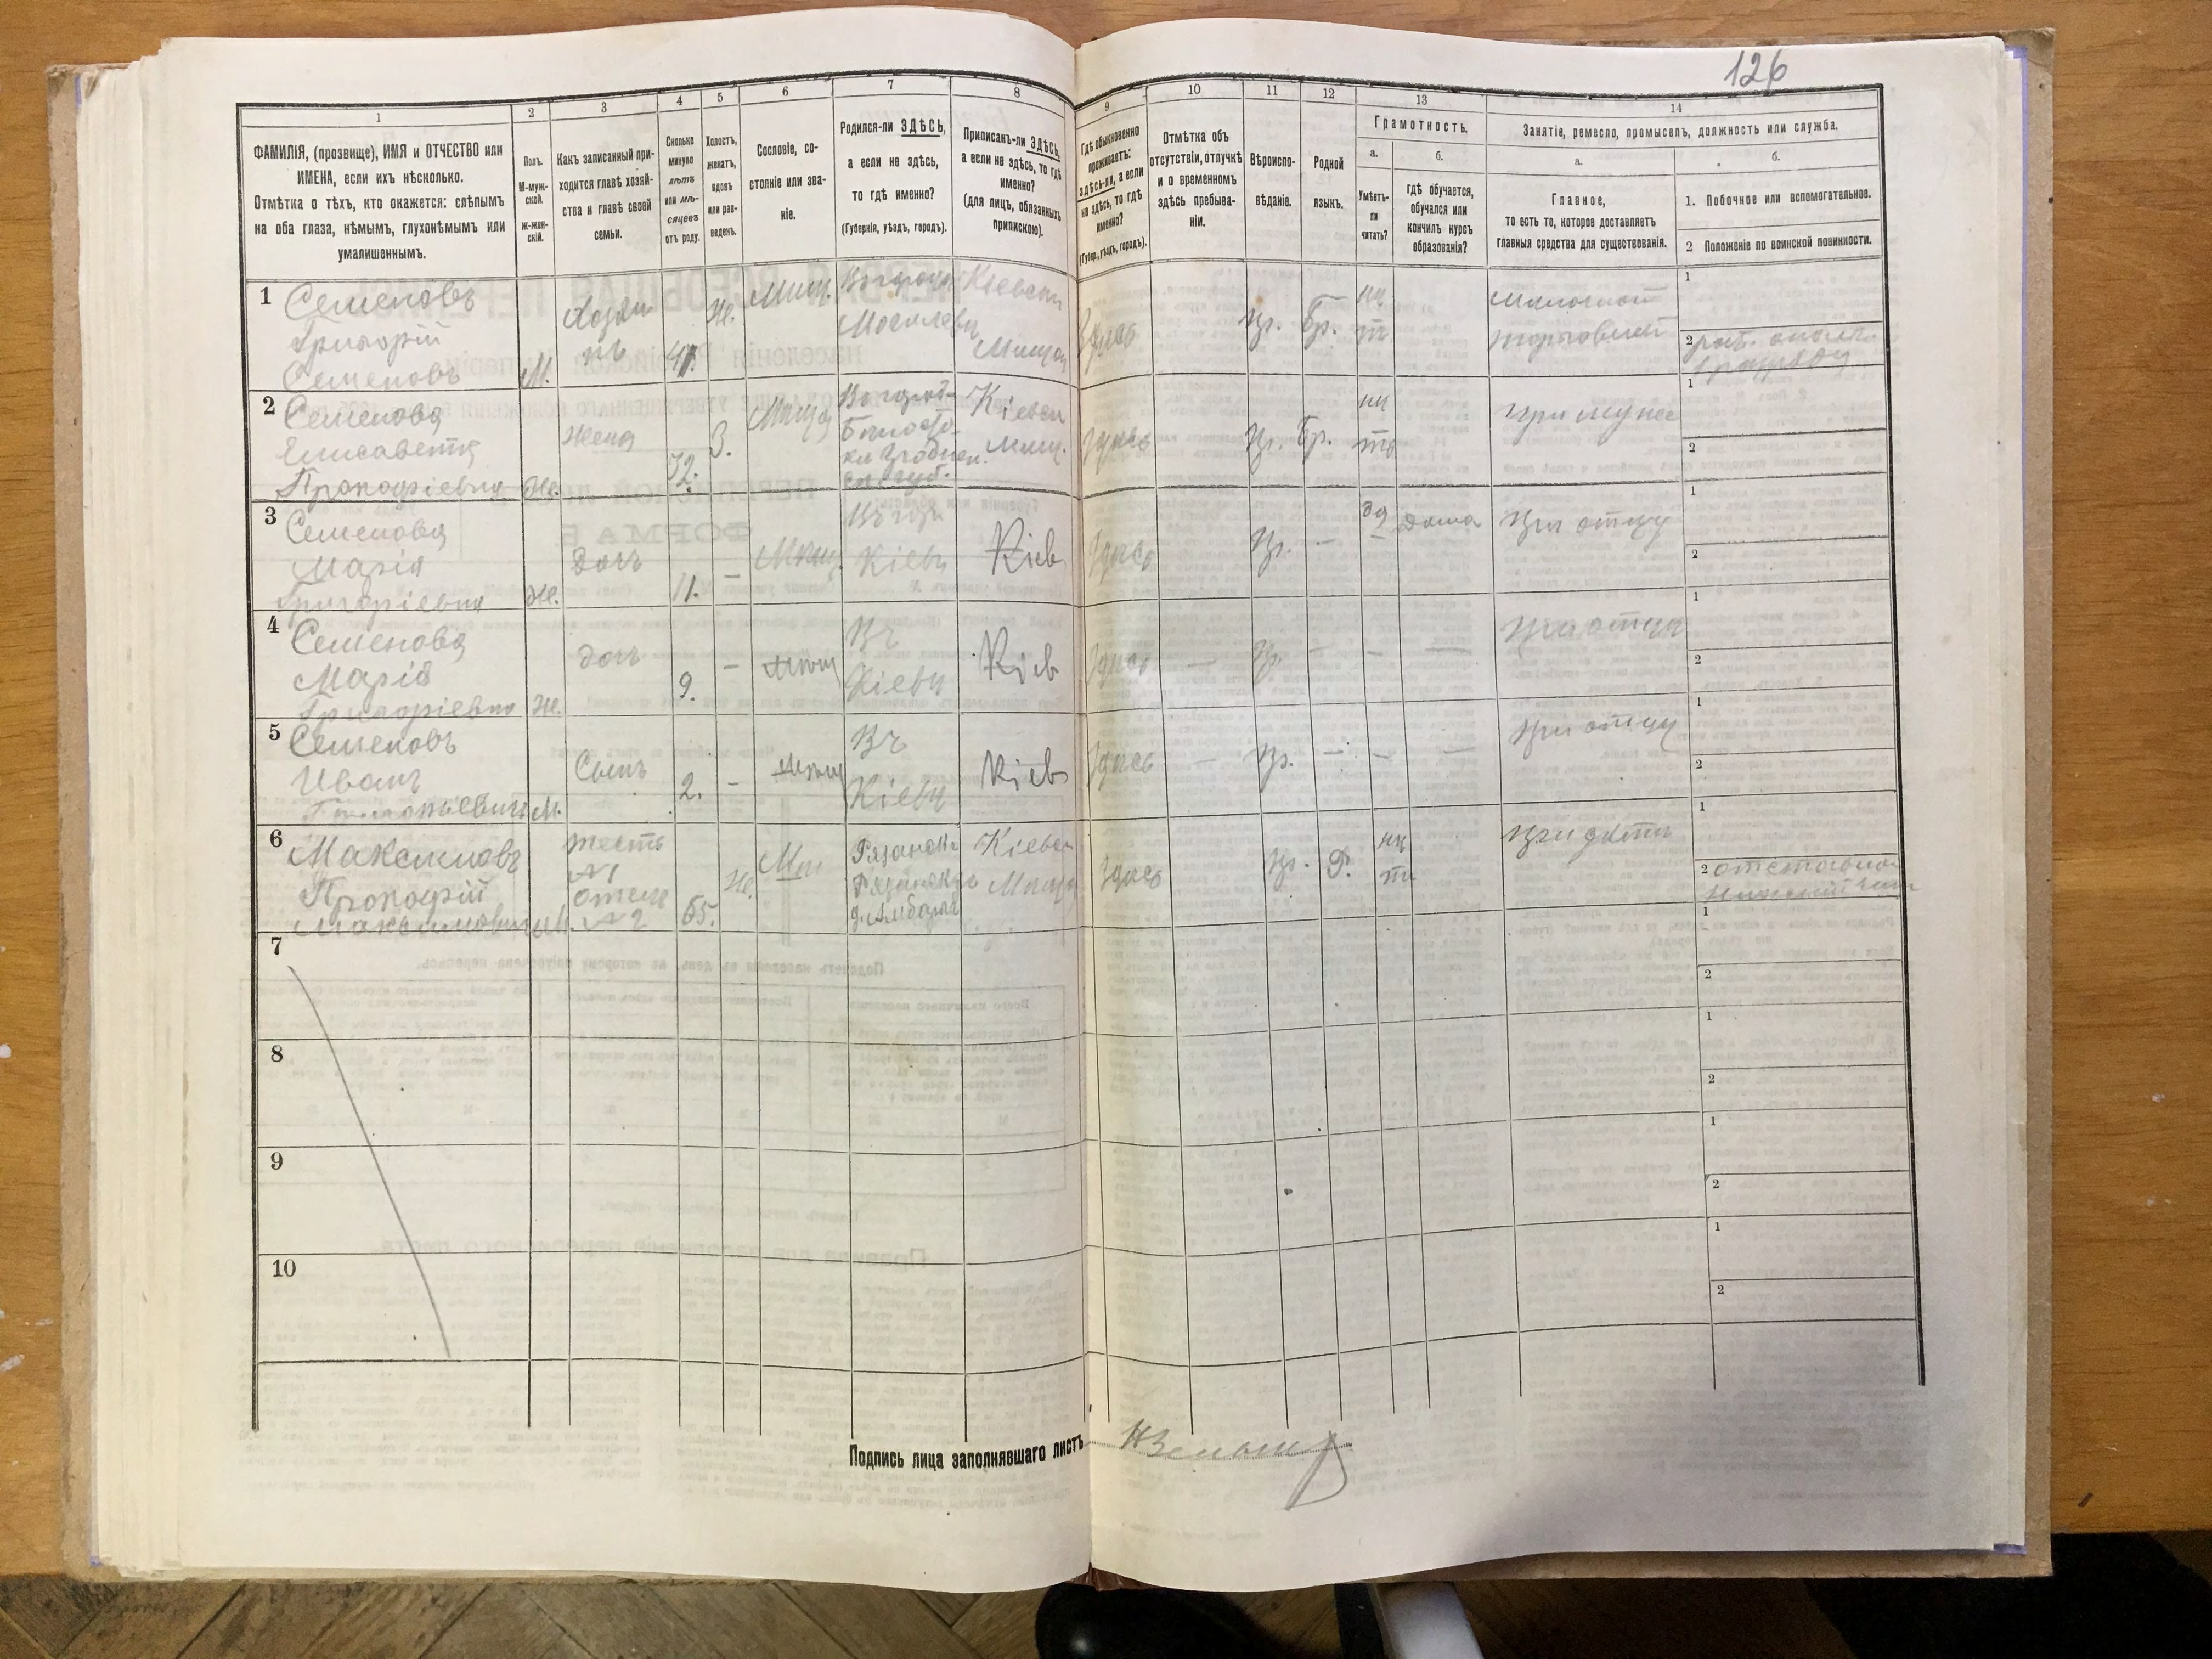 126
1
2
3
4
5
6
7
8
9
10
11
12
13
14
ФАМИЛІЯ, (прозвище), ИМЯ и ОТЧЕСТВО или
ИМЕНА, если ихъ нѣсколько.
Отмѣтка о тѣхъ, кто окажется: слѣпымъ
на оба глаза, нѣмымъ, глухонѣмымъ или
умалишеннымъ.
Полъ.
М-муж-
ской.
Ж-жен-
скій.
Какъ записанный при-
ходится главѣ хозяй-
ства и главѣ своей
семьи.
Сколько
минуло
лѣтъ
или мѣ-
сяцевъ
отъ роду.
Холостъ,
женатъ,
вдовъ
или раз-
веденъ.
Сословіе, со-
стояніе или зва-
ніе.
Родился-ли ЗДѢСЬ,
а если не здѣсь,
то гдѣ именно?
(Губернія, уѣздъ, городъ).
Приписанъ-ли ЗДѢСЬ,
а если не здѣсь, то гдѣ
именно?
(для лицъ, обязанныхъ
припискою).
Гдѣ обыкновенно
проживаетъ:
здѣсь-ли, а если
не здѣсь, то гдѣ
именно?
(Губер., уѣздъ, городъ).
Отмѣтка объ
отсутствіи, отлучкѣ
и о временномъ
здѣсь пребыва-
ніи.
Вѣроиспо-
вѣданіе.
Родной
языкъ.
Грамотность.
а.
Умѣетъ-
ли
читать?
б.
гдѣ обучается,
обучался или
кончилъ курсъ
образованія?
Занятіе, ремесло, промыселъ, должность или служба.
а.
Главное,
то есть то, которое доставляетъ
главныя средства для существованія.
б.
1. Побочное или вспомогательное.
2 Положеніе по воинской повинности.
1 Семеновъ
Григорій
Семеновъ
М.
Хозяи
нъ
Ж.
Кіевскій
Здѣсь
Пр.
нѣ
тъ
1
2
2 Семенова
Елисавета
Прокофіевна
Ж.
Жена
32.
З.
Кіевск
мѣщ.
Здѣсь
Пр.
нѣ
тъ
При мужѣ
1
2
3 Семенова
Марія
Григоріевна
Ж.
Дочь
11.
–
Мѣщ.
Кіевѣ
Кіев
Здѣсь
Пр.
–
да
дома
При отцѣ
1
2
4 Семенова
Марія
Григоріевна
Ж.
дочь
9.
–
Въ
Кіевѣ
Кіев
Здѣсь
–
Пр.
–
–
–
При отцѣ
1
2
5 Семеновъ
Иванъ
Григорьевичъ
М.
Сынъ
2.
–
Въ
Кіевѣ
Кіев
Здѣсь
–
Пр.
–
–
–
При отцѣ
1
2
6 Максимовъ
Прокофій
Максимовичъ
М.
тесть
№1
отецъ
№2
65.
Кіевск
Здѣсь
Пр.
Р.
нѣ
тъ
При дѣтяхъ
1
2
7
1
2
8
1
2
9
1
2
10
1
2
Подпись лица заполнявшаго листъ